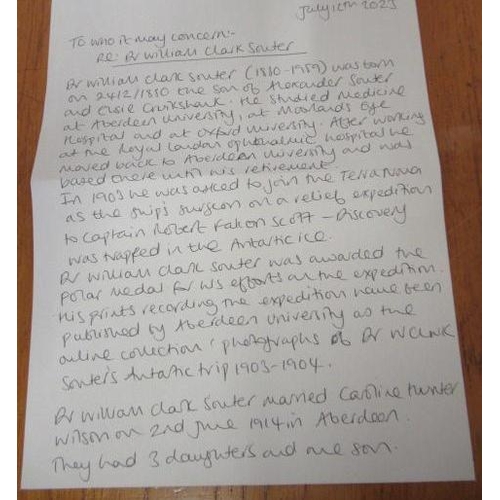 July 12th 2023
To who it may concern:-
Re: Dr William Clark Souter
Dr William Clark Souter (1880-1959) was born
on 24/12/1880 the son of Alexander Souter
and Elsie Cruikshank. He studied Medicine
at Aberdeen University, at Moorlands Eye
Hospital and at Oxford University. After working
at the Royal London Ophthalmic hospital he
moved back to Aberdeen University and was
based there until his retirement.
In 1903 he was asked to join the Terra Nova
as the ship's surgeon on a relief expedition
to Captain Robert Falcon Scott - Discovery
was trapped in the Antartic ice.
Dr William Clark Souter was awarded the
Polar Medal for his efforts on the expedition.
His prints recording the expedition have been
published by Aberdeen University as the
online collection 'photographs of Dr W Clark
Souter's Antartic trip 1903-1904.
Dr William Clark Souter married Caroline Hunter
Wilson on 2nd June 1914 in Aberdeen.
They had 3 daughters and one son.